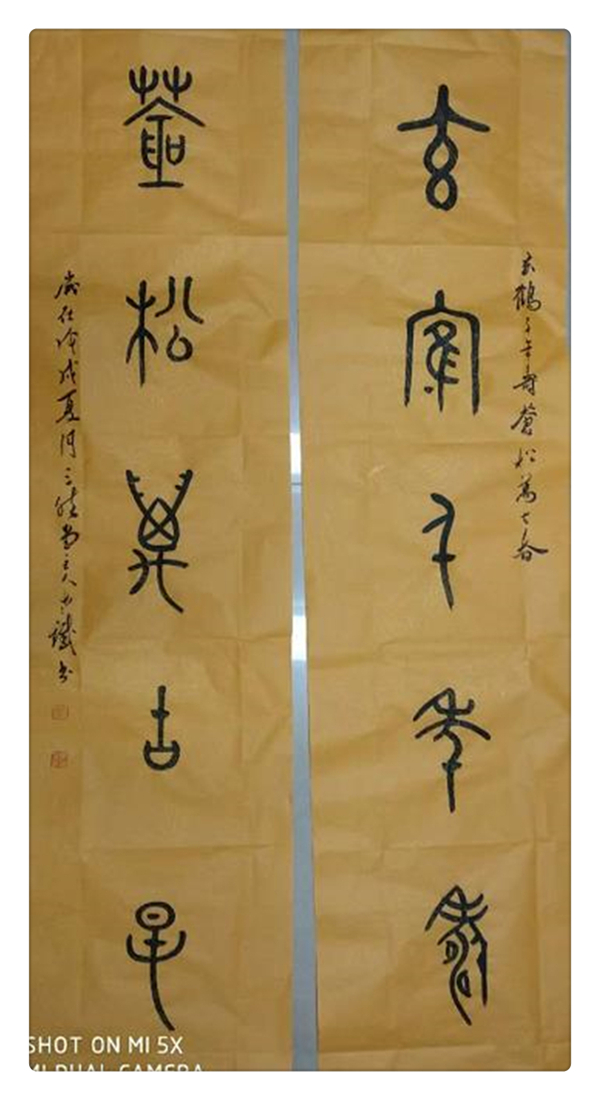 玄鶴千年壽蒼松萬古春
玄寉千年壽
蒼松萬古春
歲在戊戌夏月三堂主人鐵書
SHOT ON MI 5X
MI DUAL CAMERA